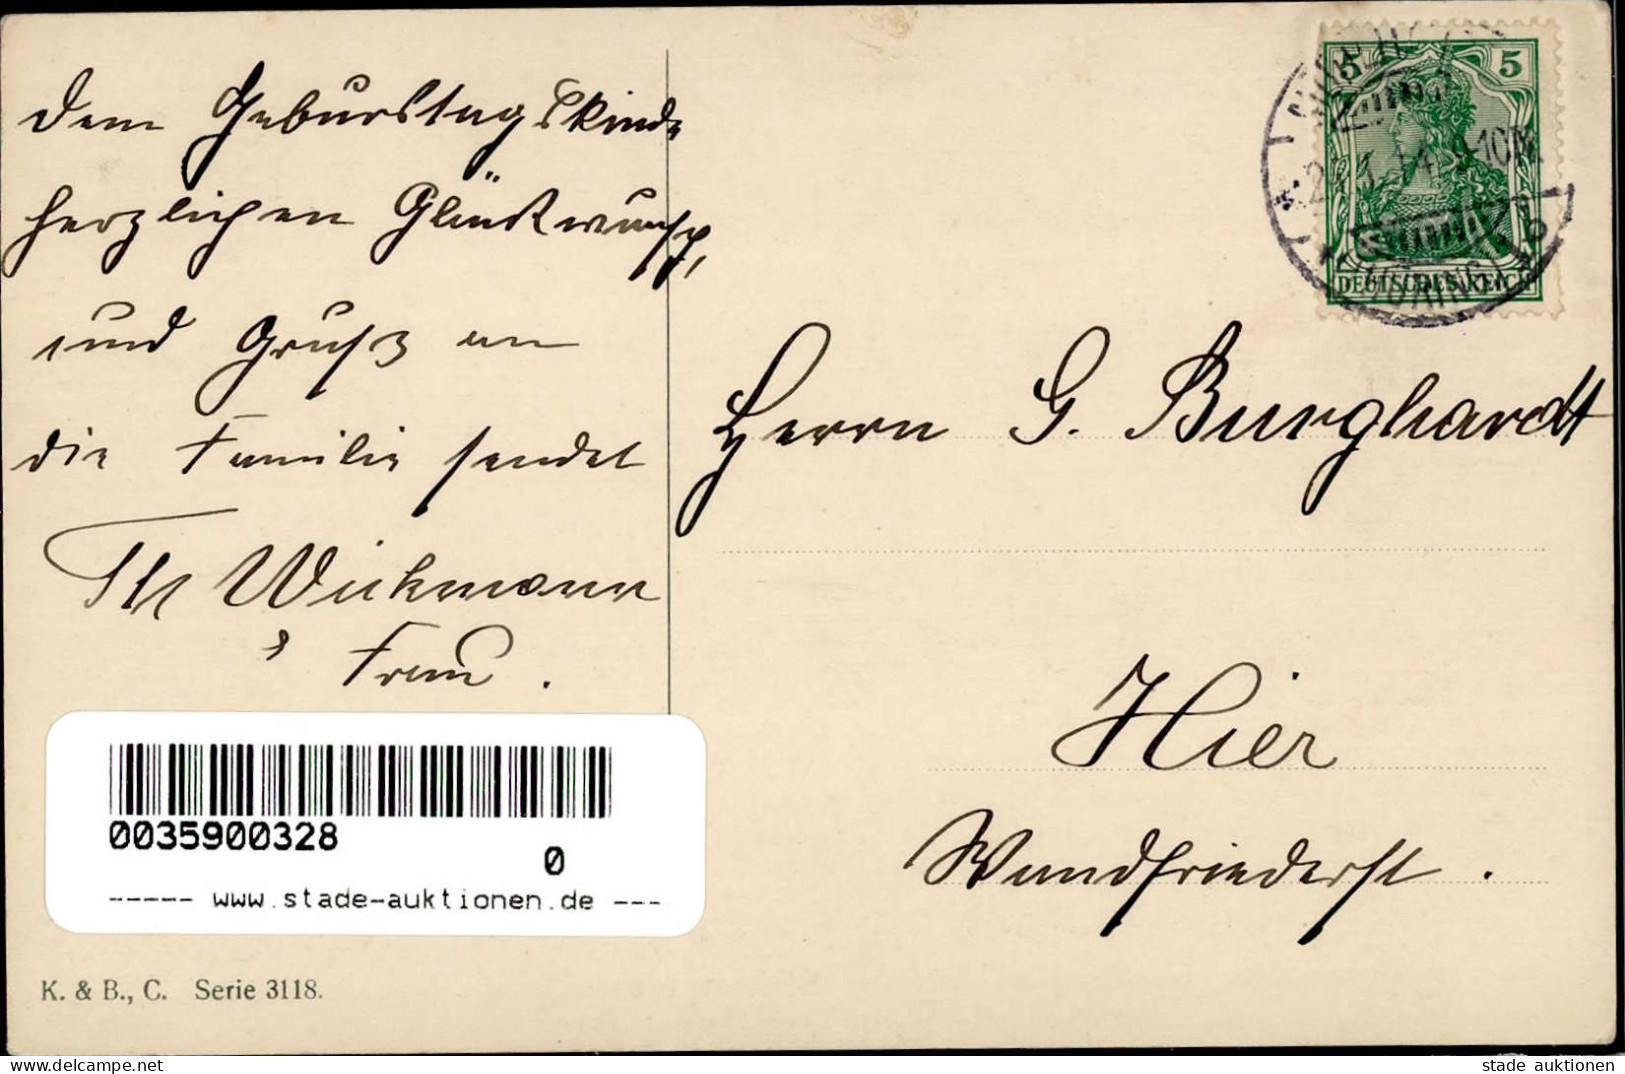 Dem Geburtstagskinde
herzlichen Glückwunsch,
und Gruß an
die Familie sendet
Th Wichmann
& Frau.
5 5
DEUTSCHES REICH
THÜRING
Herrn G. Burghardt
Hier
Wendfriederst.
0035900328
0
----- www.stade-auktionen.de ---
K. & B., C. Serie 3118.
https://www.delcampe.net
stade auktionen